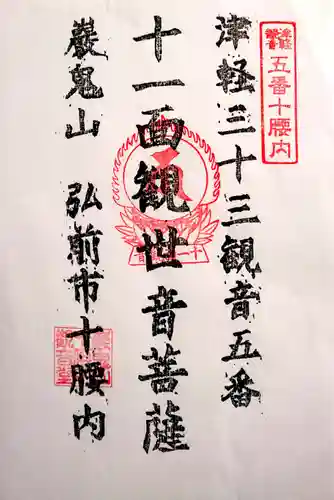 津軽観音
五番十腰内
津軽三十三観音五番
十一面観世音菩薩
巖鬼山 弘前市十腰内